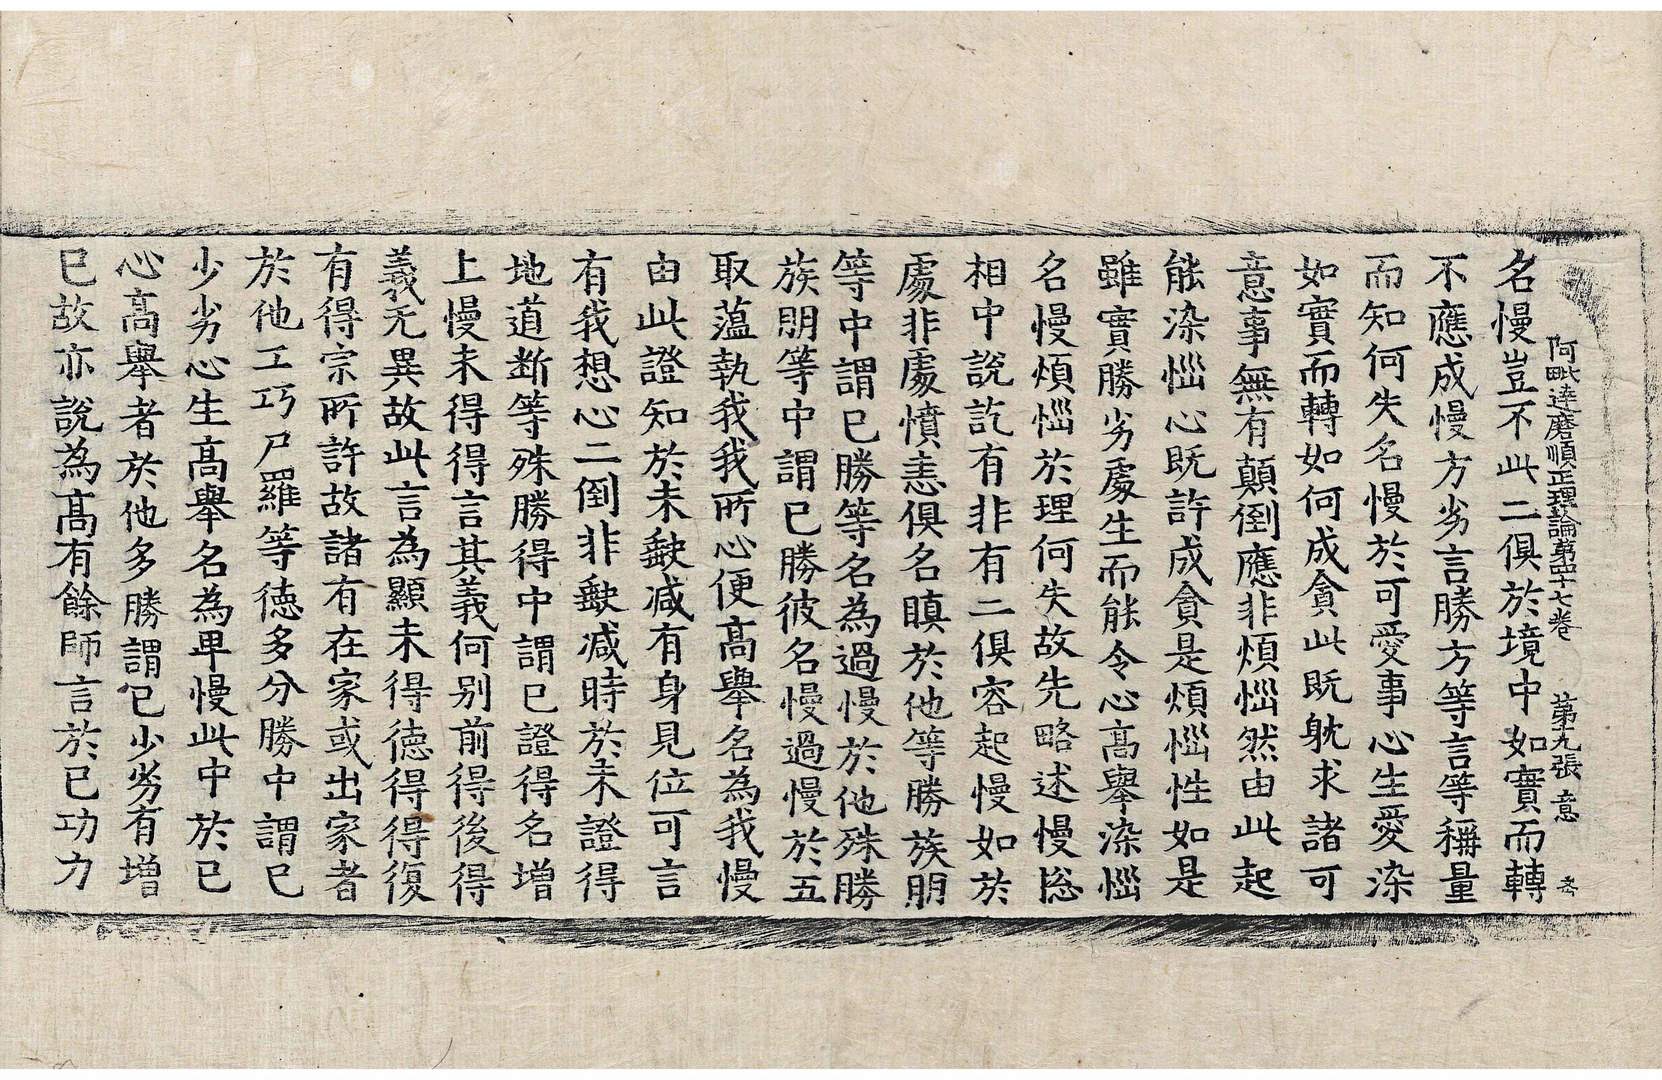 阿毗達磨順正理論第四十七卷 第十九張 意
名慢豈不此二俱於境中如實而轉
不應成慢方劣言勝方等言等稱量
而知何失名慢於可愛事心生愛染
如實而轉如何成貪此既躭求諸可
意事無有顛倒應非煩惱然由此起
能染惱心既許成貪是煩惱性如是
雖實勝劣處生而能令心高舉染惱
名慢煩惱於理何失故先略述慢惣
相中說訖有非有二俱容起慢如於
處非處憤恚俱名瞋於他等勝族朋
等中謂已勝等名為過慢於他殊勝
族朋等中謂已勝彼名慢過慢於五
取蘊執我我所心便高舉名為我慢
由此證知於未缺減有身見位可言
有我想心二倒非缺减時於未證得
地道断等殊勝得中謂已證得名增
上慢未得得言其義何別前得後得
義无異故此言為顯未得得德得復
有得宗所許故諸有在家或出家者
於他工巧尸羅等德多分勝中謂已
少劣心生高舉名為卑慢此中於已
心高舉者於他多勝謂已少劣有增
已故亦說為高有餘師言於已功力